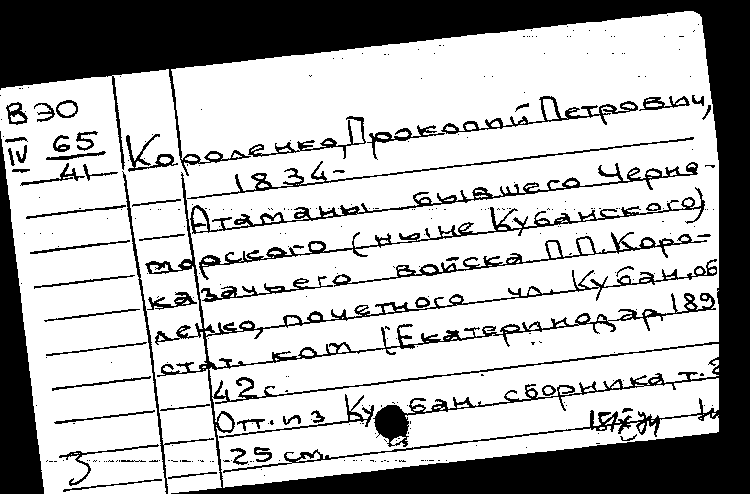 ВЭО
IV 65/41
Короленко, Прокопий Петрович,
1834-
Атаманы бывшего Черно-
морского (ныне Кубанского)
казачьего войска П.П. Коро-
ленко, почетного чл. Кубан. об
стат. ком. [Екатеринодар, 189
42 с.
Отт. из Кубан. сборника, т. 8
25 см.
3